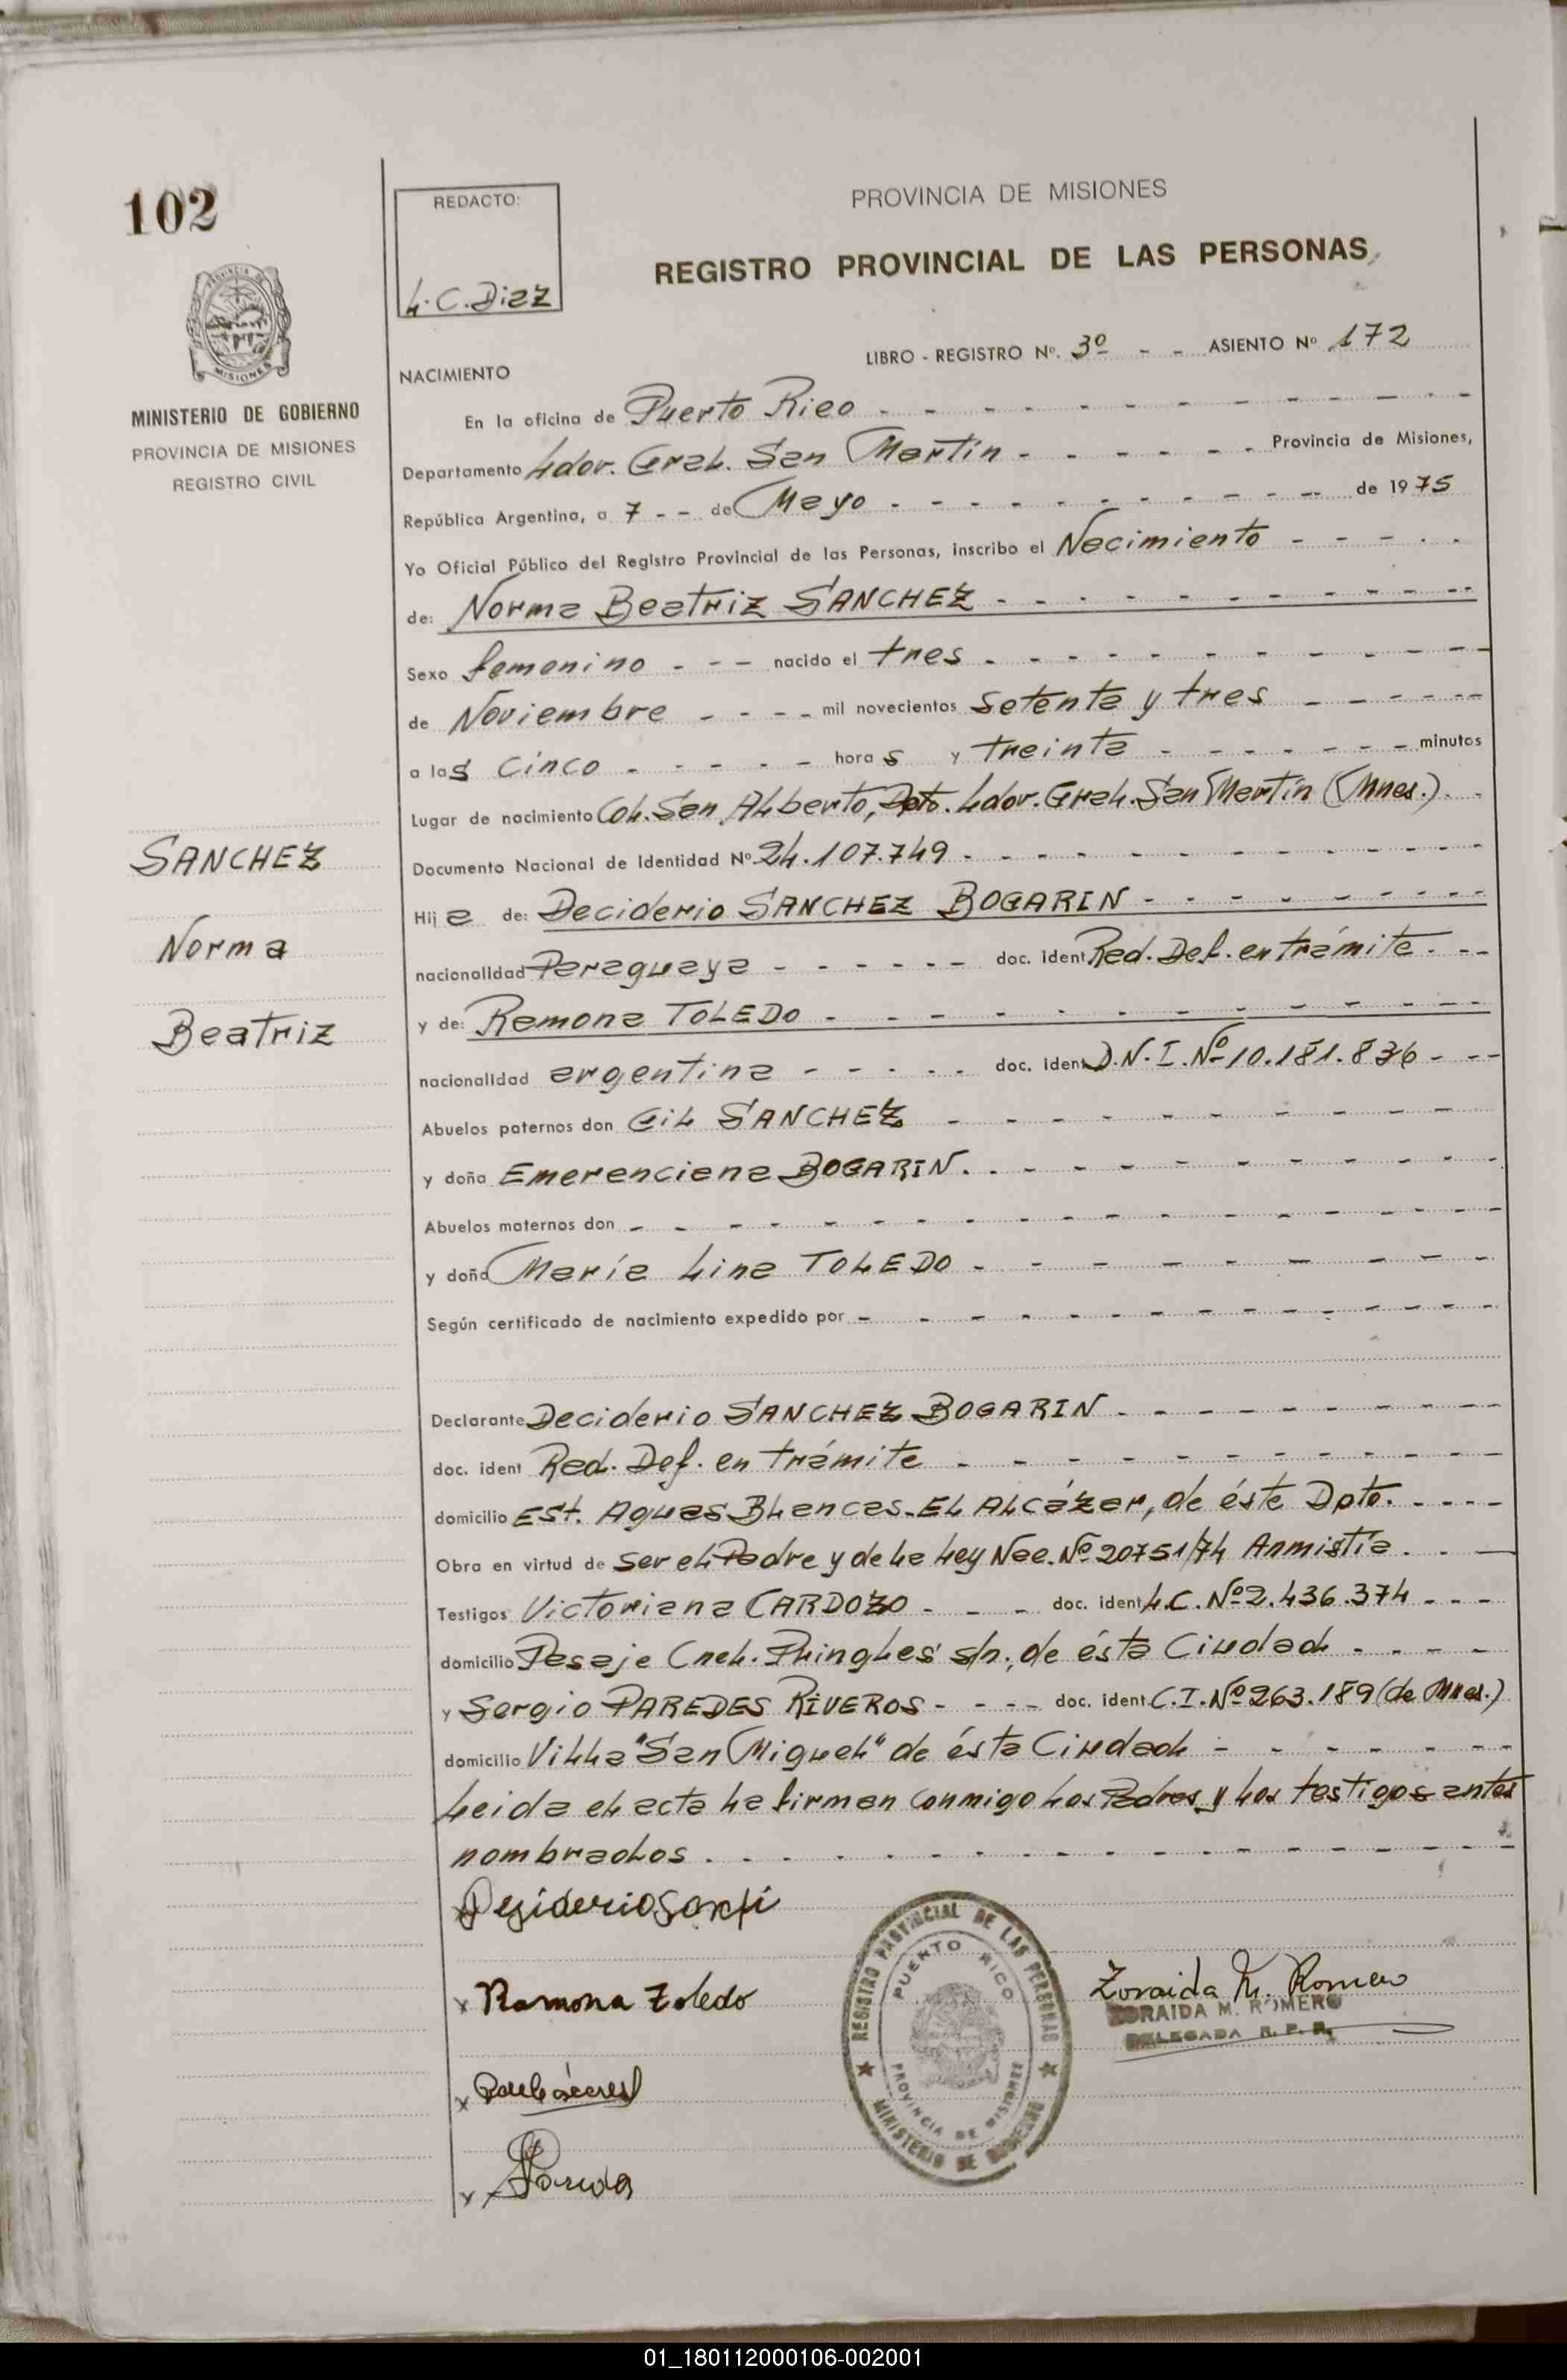 102
REDACTO:
L.C. Diaz
PROVINCIA DE MISIONES
REGISTRO PROVINCIAL DE LAS PERSONAS
MINISTERIO DE GOBIERNO
PROVINCIA DE MISIONES
REGISTRO CIVIL
LIBRO - REGISTRO Nº. 3º - - ASIENTO Nº 172
NACIMIENTO
En la oficina de Puerto Rico
Departamento Ldor. Gral. San Martín Provincia de Misiones,
República Argentina, a 7 - - de Mayo de 1975
Yo Oficial Público del Registro Provincial de las Personas, inscribo el Nacimiento
de: Norma Beatriz SANCHEZ
Sexo femenino nacido el tres
de Noviembre mil novecientos setenta y tres
a las cinco horas y treinta minutos
Lugar de nacimiento Col. San Alberto, Dpto. Ldor. Gral. San Martín (Mnes.)
Documento Nacional de Identidad Nº 24.107.749
Hija de: Deciderio SANCHEZ BOGARIN
nacionalidad Paraguaya doc. ident Rad. Def. en trámite
y de: Ramona TOLEDO
nacionalidad argentina doc. ident D.N.I. Nº 10.181.836
Abuelos paternos don Gil SANCHEZ
y doña Emerenciana BOGARIN.
Abuelos maternos don
y doña María Lina TOLEDO
Según certificado de nacimiento expedido por
Declarante Deciderio SANCHEZ BOGARIN
doc. ident Rad. Def. en trámite
domicilio Est. Aguas Blancas-EL ALcázar, de éste Dpto.
Obra en virtud de ser el Padre y de la Ley Nac. Nº 20751/74 Anmistía.
Testigos Victoriana CARDOZO doc. ident L.C. Nº 2.436.374
domicilio Pasaje Cnel. Pringles s/n., de ésta Ciudad
y Sergio PAREDES RIVEROS doc. ident. C.I. Nº 263.189 (de Mnes.)
domicilio Villa "San Miguel" de ésta Ciudad
Leida el acta la firman conmigo los Padres y los testigos antes
nombrados.
SANCHEZ
Norma
Beatriz
x Ramona Toledo
Zoraida M. Romero
ZORAIDA M. ROMERO
DELEGADA R. P. P.
REGISTRO PROVINCIAL DE LAS PERSONAS
PUERTO RICO
PROVINCIA DE MISIONES
MINISTERIO DE GOBIERNO
01_180112000106-002001